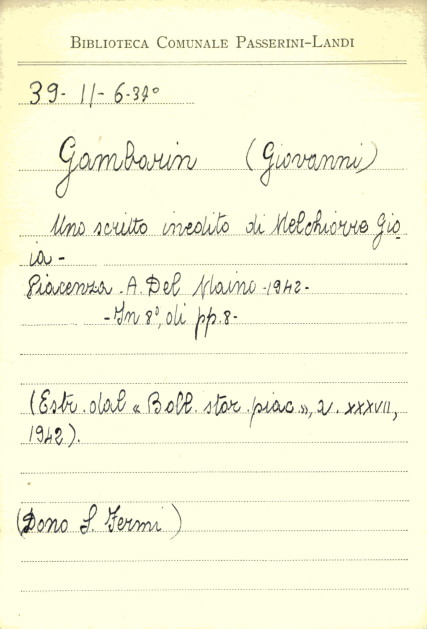 BIBLIOTECA COMUNALE PASSERINI-LANDI
39- 11- 6-37°
Gambarin (Giovanni)
Uno scritto inedito di Melchiorre Gio
ia -
Piacenza - A. Del Maino -1942-
-In 8°, di pp. 8-
(Estr. dal « Boll. stor. piac.», a. XXXVII,
1942).
(Dono S. Fermi)